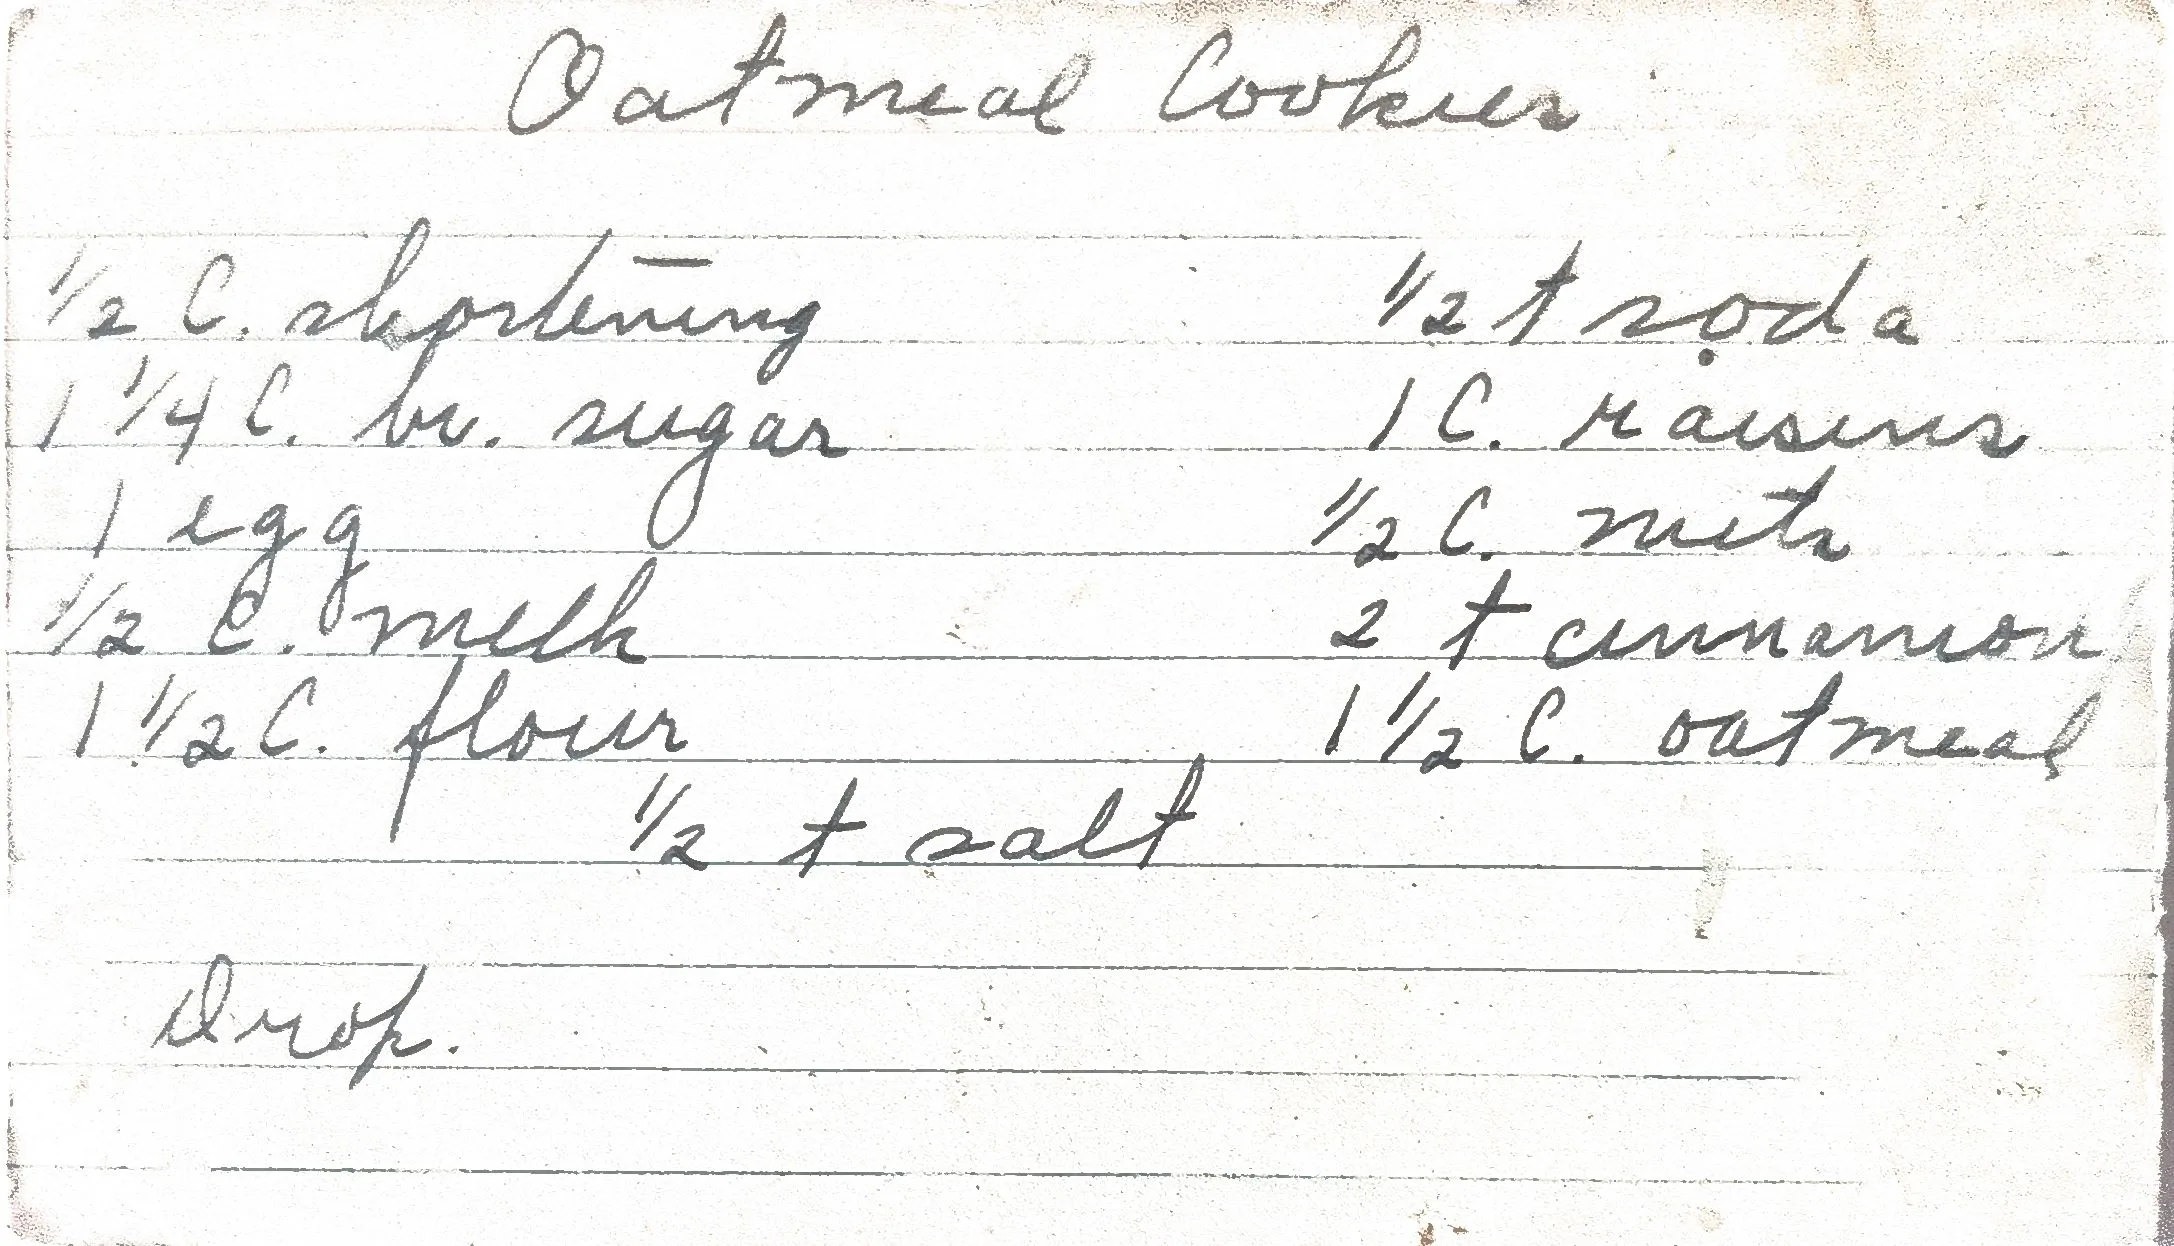 Oatmeal Cookies
½ C. shortening
1 ¼ C. br. sugar
1 egg
½ C. milk
1 ½ C. flour
½ t soda
1 C. raisins
½ C. nuts
2 t cinnamon
1 ½ C. oatmeal
½ t salt
Drop.